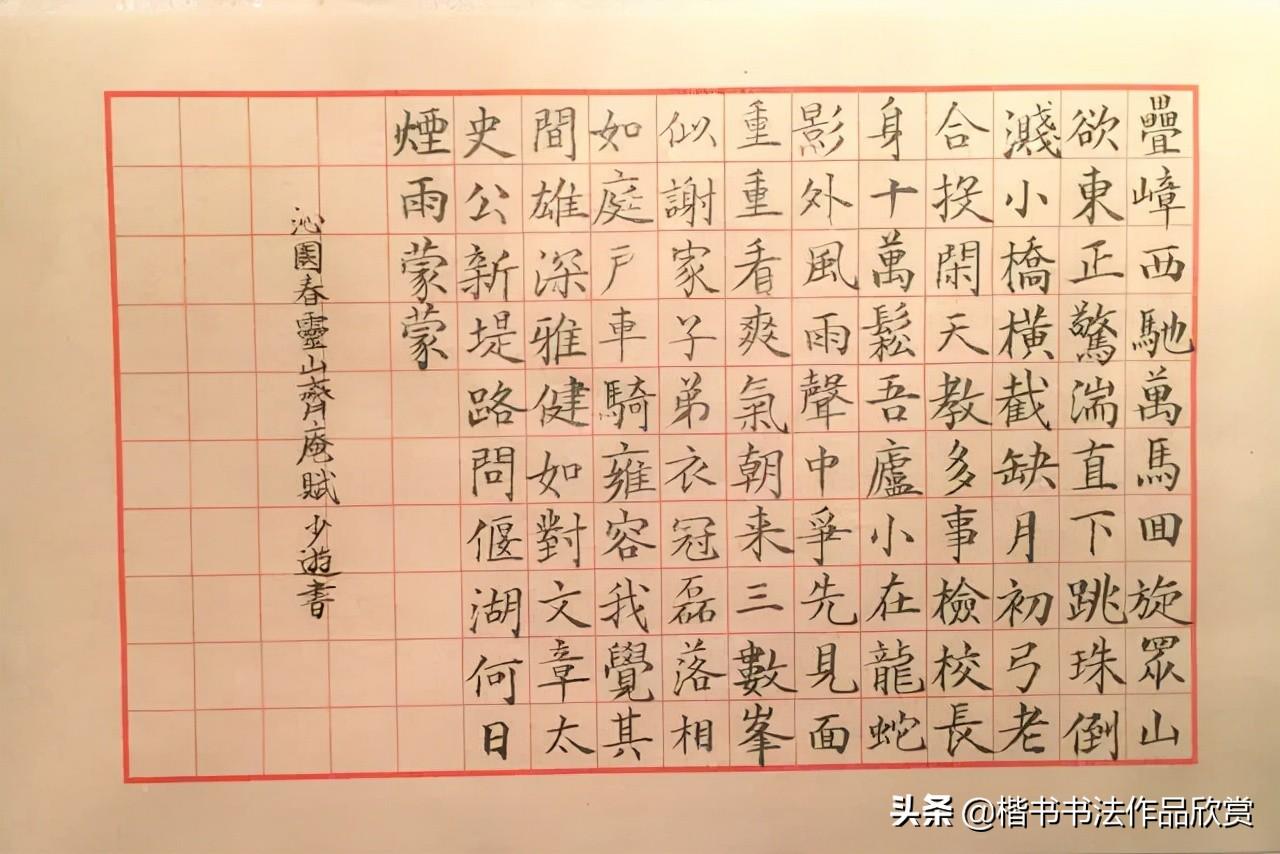 疊嶂西馳萬馬回旋眾山
欲東正驚湍直下跳珠倒
濺小橋橫截缺月初弓老
合投閑天教多事檢校長
身十萬鬆吾廬小在龍蛇
影外風雨聲中爭先見面
重重看爽氣朝来三數峯
似謝家子弟衣冠磊落相
如庭戶車騎雍容我覺其
間雄深雅健如對文章太
史公新堤路問偃湖何日
煙雨蒙蒙
沁園春靈山齊庵賦少遊書
头条@楷书书法作品欣赏